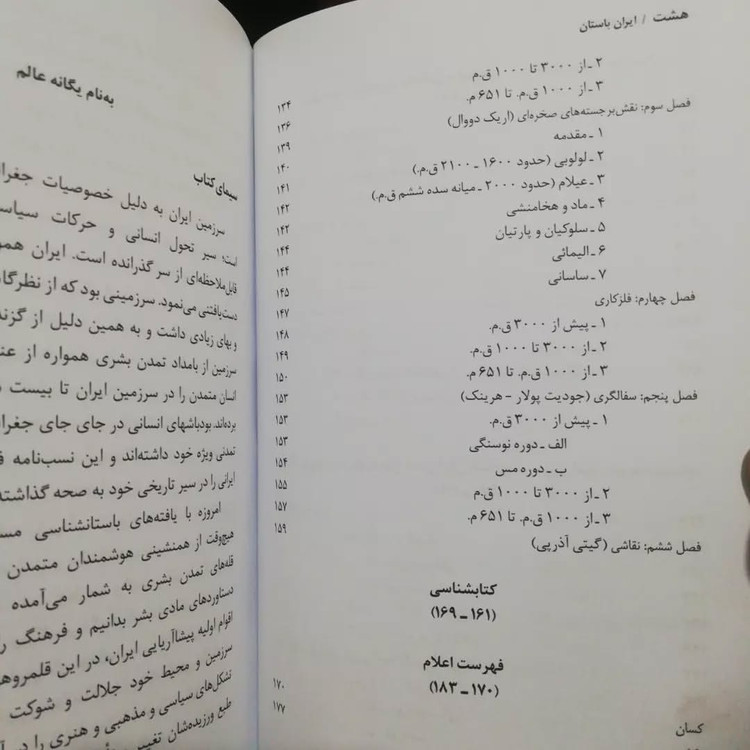 هشت / ایران باستان
۲ ـ از ۳۰۰۰ تا ۱۰۰۰ ق.م
۳ ـ از ۱۰۰۰ ق.م. تا ۶۵۱ م.
۱۳۴
فصل سوم: نقش‌برجسته‌های صخره‌ای (اریک دووال)
۱۳۶
۱ ـ مقدمه
۱۳۹
۲ ـ لولوبی (حدود ۱۶۰۰ ـ ۲۱۰۰ ق.م.)
۱۴۰
۳ ـ عیلام (حدود ۲۰۰۰ ـ میانه سده ششم ق.م.)
۱۴۱
۴ ـ ماد و هخامنشی
۱۴۲
۵ ـ سلوکیان و پارتیان
۱۴۲
۶ ـ الیمائی
۱۴۴
۷ ـ ساسانی
۱۴۴
فصل چهارم: فلزکاری
۱۴۵
۱ ـ پیش از ۳۰۰۰ ق.م.
۱۴۷
۲ ـ از ۳۰۰۰ تا ۱۰۰۰ ق.م.
۱۴۸
۳ ـ از ۱۰۰۰ ق.م. تا ۶۵۱ م.
۱۴۹
فصل پنجم: سفالگری (جودیت پولار - هرینک)
۱۵۰
۱ ـ پیش از ۳۰۰۰ ق.م.
۱۵۳
الف ـ دوره نوسنگی
۱۵۳
ب ـ دوره مس
۱۵۳
۲ ـ از ۳۰۰۰ تا ۱۰۰۰ ق.م
۱۵۴
۳ ـ از ۱۰۰۰ ق.م. تا ۶۵۱ م.
۱۵۵
فصل ششم: نقاشی (گیتی آذرپی)
۱۵۷
۱۵۹
کتابشناسی
(۱۶۱ ـ ۱۶۹)
فهرست اعلام
(۱۷۰ ـ ۱۸۳)
کسان
۱۷۰
۱۷۷
به‌نام یگانه عالم
سیمای کتاب
سرزمین ایران به دلیل خصوصیات
است؛ سیر تحول انسانی و حرکات
قابل‌ملاحظه‌ای از سر گذرانده است. ایران
دست‌یافتنی می‌نمود. سرزمینی بود که از
و بهای زیادی داشت و به همین دلیل از
سرزمین از بامداد تمدن بشری همواره از
انسان متمدن را در سرزمین ایران تا بیست
برده‌اند. بودباشهای انسانی در جای جای
تمدنی ویژه خود داشته‌اند و این نسب‌نامه
ایرانی را در سیر تاریخی خود به صحه گذاشته
امروزه با یافته‌های باستانشناسی
هیچ‌وقت از همنشینی هوشمندان متمدن
قله‌های تمدن بشری به شمار می‌آمده
دستاوردهای مادی بشر بدانیم و فرهنگ
اقوام اولیه پیشاآریایی ایران، در این
سرزمین و محیط خود جلالت و شوکت
تشکل‌های سیاسی و مذهبی و هنری را در
طبع ورزیده‌شان